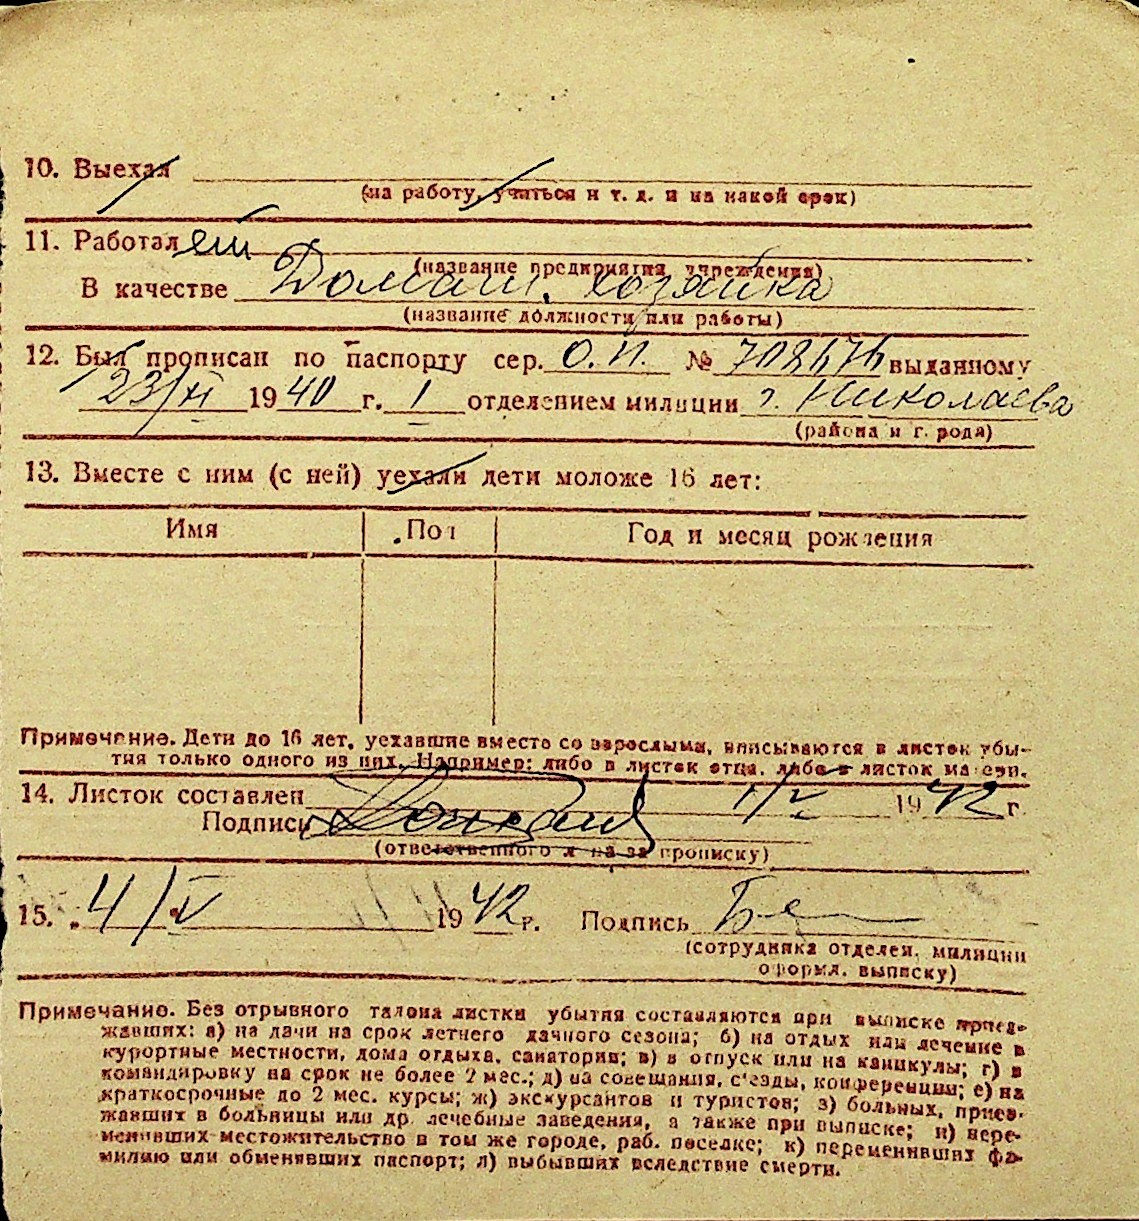 10. Выехал
(на работу, учиться и т. д. и на какой срок)
11. Работал
(название предприятия, учреждения)
В качестве Домаш. хозяйка
(название должности или работы)
12. Был прописан по паспорту сер. О.П. № выданному
23/XI 1940 г. 1 отделением милиции г. Николаева
(района и г. рода)
13. Вместе с ним (с ней) уехали дети моложе 16 лет:
Имя Пол Год и месяц рождения
Примечание. Дети до 16 лет, уехавшие вместо со взрослыми, вписываются в листок убы-
тия только одного из них. Например: либо в листок отца, либо в листок матери.
14. Листок составлен 1/V 1942 г.
Подпись
(ответственного л на за прописку)
15. 4/V 1942 г. Подпись
(сотрудника отделен. милиции
оформл. выписку)
Примечание. Без отрывного талона листки убытия составляются при выписке приез-
жавших: а) на дачи на срок летнего дачного сезона; б) на отдых или лечение в
курортные местности, дома отдыха, санатории; в) в отпуск или на каникулы; г) в
командировку на срок не более 2 мес.; д) на совещания, съезды, конференции; е) на
краткосрочные до 2 мес. курсы; ж) экскурсантов и туристов; з) больных, приез-
жавших в больницы или др. лечебные заведения, а также при выписке; и) пере-
менивших местожительство в том же городе, раб. поселке; к) переменивших фа-
милию или обменявших паспорт; л) выбывших вследствие смерти.